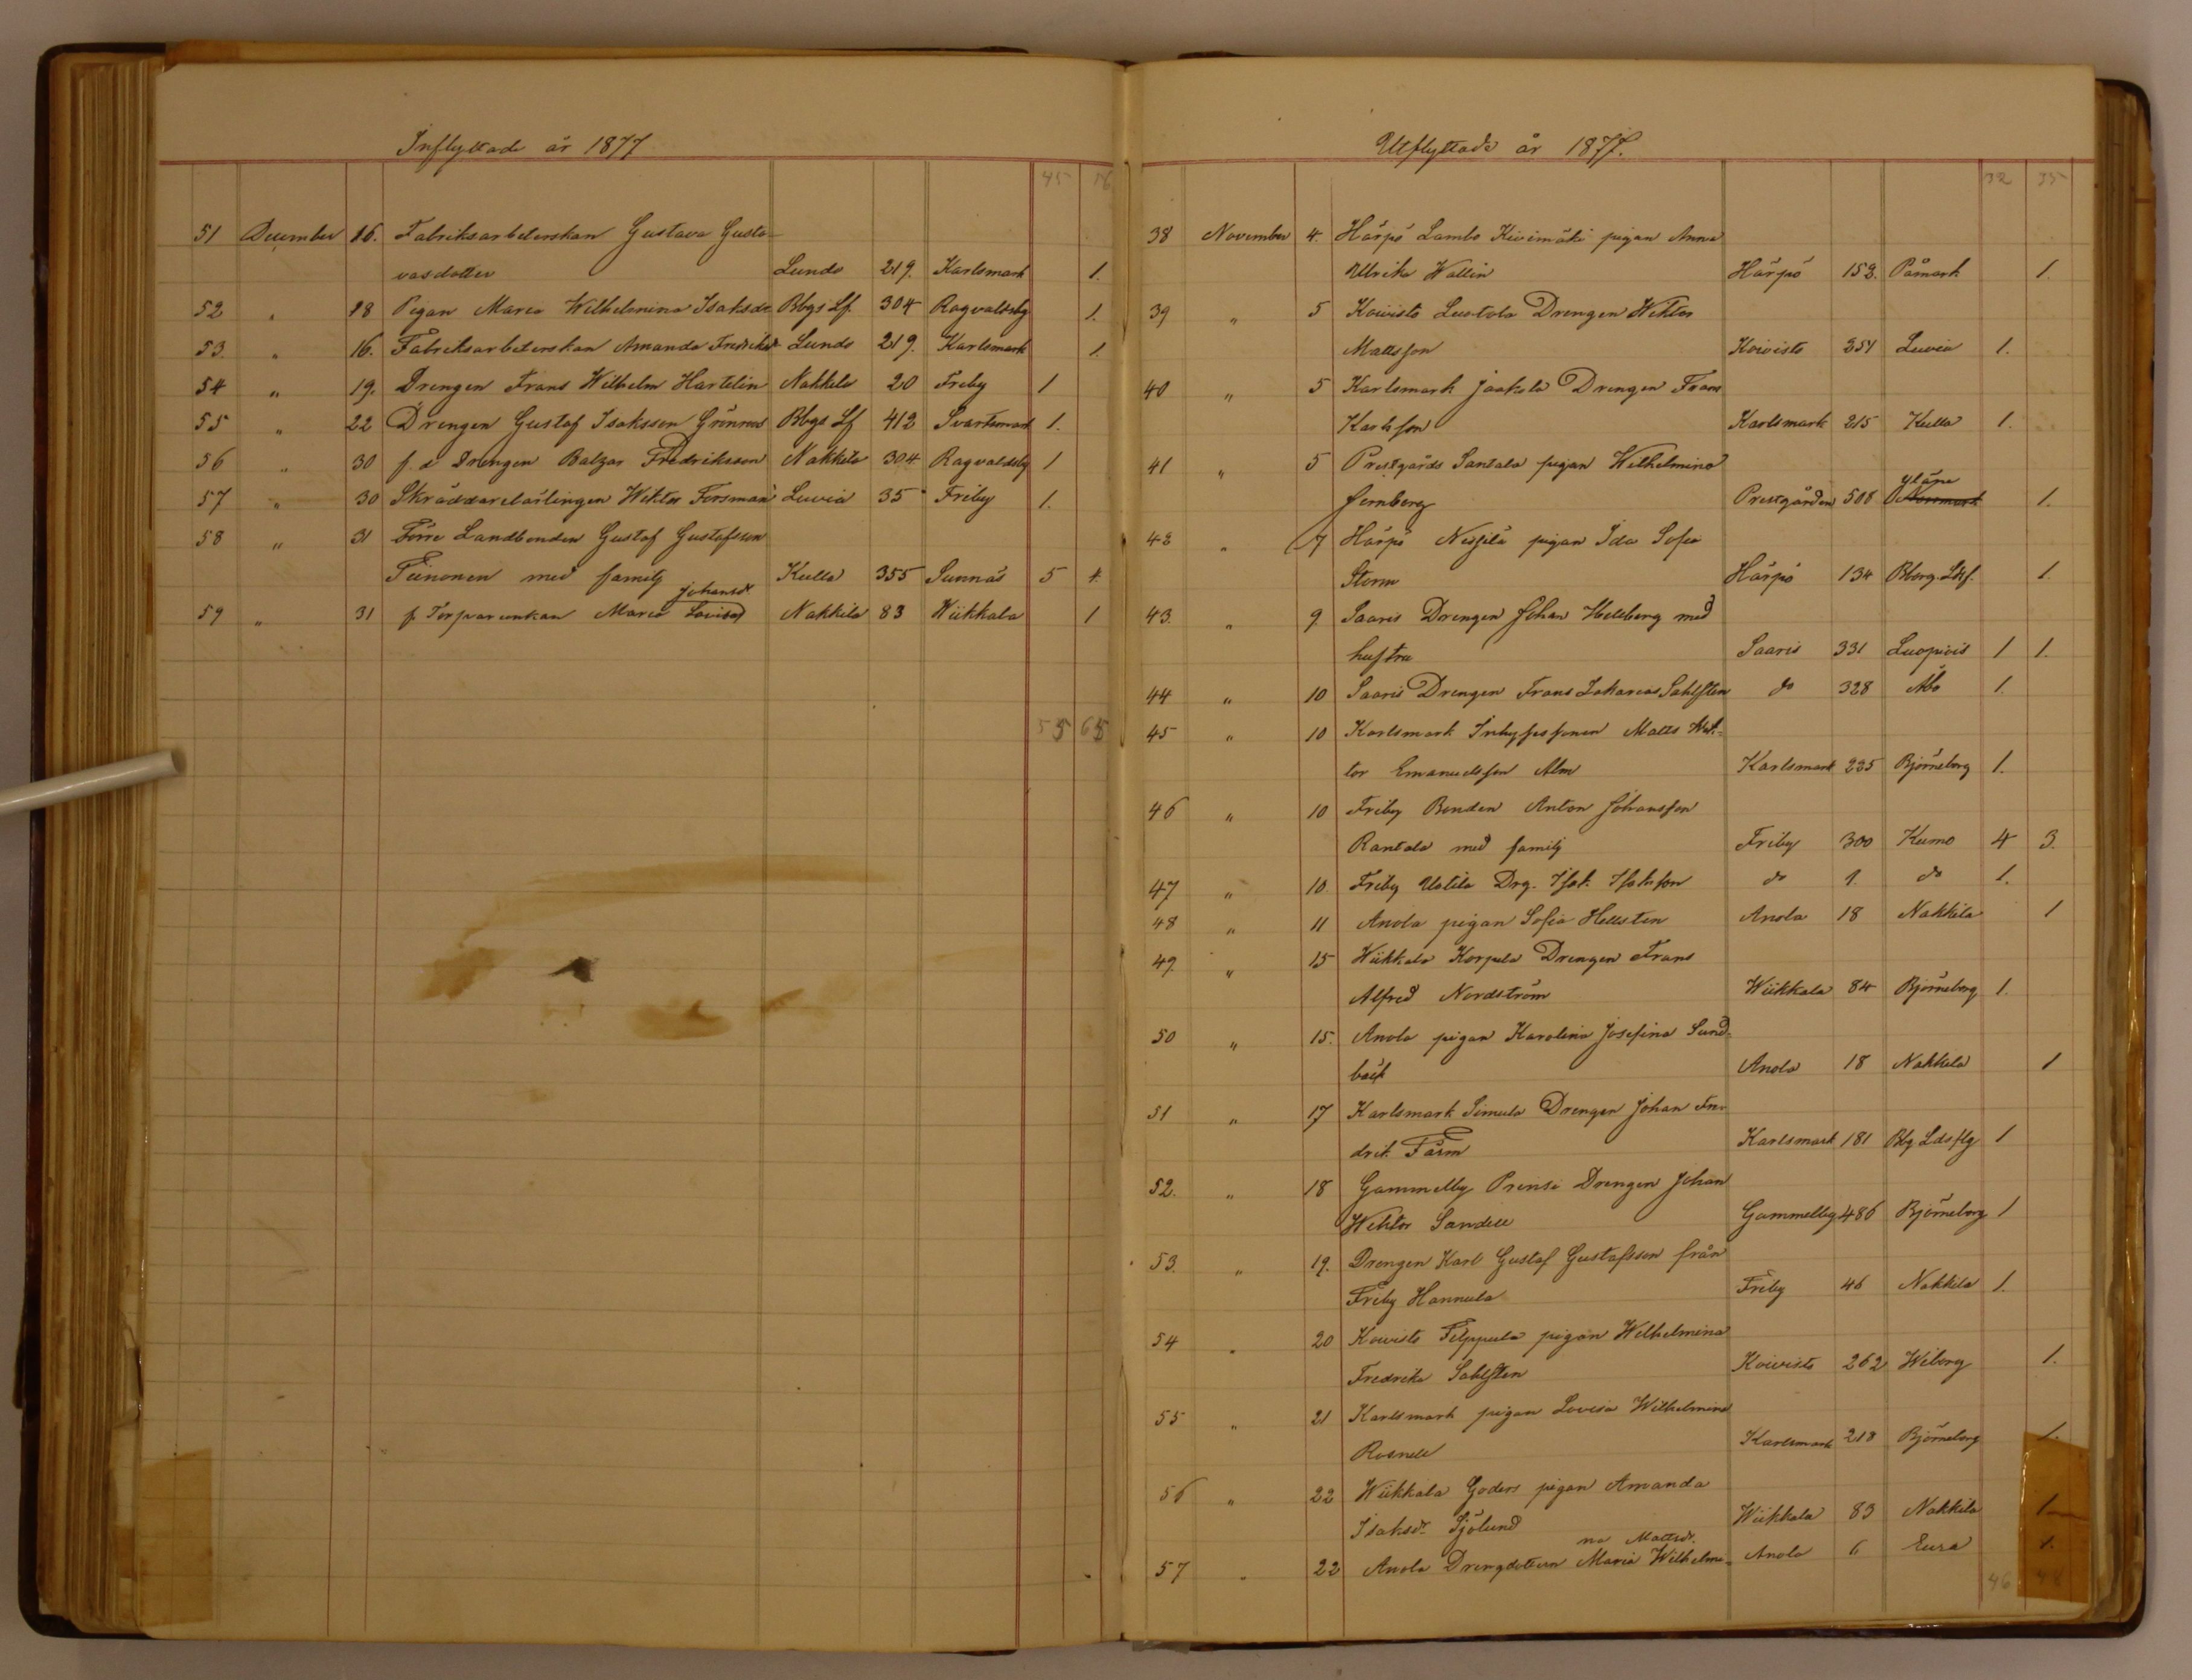 Inflyttade år 1877
45
51 December 16. Fabriksarbeterskan Gustava Gusta-
vasdotter Lunds 219. Karlsmark 1.
52 " 18 Pigan Maria Wilhelmina Isaksdr Bbgs Lf. 304 Ragvaldsby 1.
53 " 16. Fabriksarbeterskan Amanda Fredriksdr Lunds 219. Karlsmark 1.
54 " 19. Drengen Frans Wilhelm Hartelin Nakkila 20 Friby 1
55 " 22 Drengen Gustaf Isaksson Grönroos Bbgs Lf 412 Svartsmark 1.
56 " 30 f. d Drengen Balzar Fredriksson Nakkila 304 Ragvaldsby 1
57 " 30 Skräddarelärlingen Wiktor Forsman Luvia 35 Friby 1.
58 " 31 Förre Landbonden Gustaf Gustafsson
Tiinonen med familj Kulla 355 Sunnäs 5 4.
Johansdr
59 " 31 f. Torparenkan Maria Lovisa Nakkila 83 Wiikkala 1
55 65
Utflyttade år 1877.
32 35
38 November 4. Härpö Lambo Kivimäki pigan Anna
Ulrika Wallin Härpö 152. Påmark 1.
39 " 5 Koivisto Luotola Drengen Wiktor
Mattsson Koivisto 251 Luvia 1.
40 " 5 Karlsmark Jaakola Drengen Frans
Karlsson Karlsmark 215 Kulla 1.
41 " 5 Prestgårds Santala pigan Wilhelmina
Yläne
Jernberg Prestgården 508 Norrmark 1.
42 " 7 Härpö Nissilä pigan Ida Sofia
Storm Härpö 134 Bborg. Ldsf. 1.
43. " 9. Saaris Drengen Johan Hellberg med
hustru Saaris 331 Luopiois 1 1.
44 " 10 Saaris Drengen Frans Zakarias Sahlsten do 328 Åbo 1.
45 " 10 Karlsmark Inhysessonen Matts Wik-
tor Emanuelsson Alm Karlsmark 225 Björneborg 1.
46 " 10 Friby Bonden Anton Johansson
Rantala med familj Friby 300 Kumo 4 3.
47 " 10 Friby Uotila Drg. Isak Isaksson do 1. do 1.
48 " 11 Anola pigan Sofia Hellsten Anola 18 Nakkila 1
49. " 15 Wiikkala Korpela Drengen Frans
Alfred Nordström Wiikkala 84 Björneborg 1.
50 " 15. Anola pigan Karolina Josefina Sund-
bäck Anola 18 Nakkila 1
51 " 17 Karlsmark Simula Drengen Johan Fre-
drik Färm Karlsmark 181 Bbg Ldsflg 1
52. " 18 Gammelby Prensi Drengen Johan
Wiktor Sandell Gammelby 486 Björneborg 1
53. " 19. Drengen Karl Gustaf Gustafsson från
Friby Hannula Friby 46 Nakkila 1.
54 " 20 Koivisto Filppula pigan Wilhelmina
Fredrika Sahlsten Koivisto 262 Wiborg 1.
55 " 21 Karlsmark pigan Lovisa Wilhelmina
Rosnell Karlsmark 218 Björneborg 1.
56 " 22 Wiikkala Goders pigan Amanda
Isaksdr Sjölund Wiikkala 83 Nakkila 1
na Mattsdr.
57 " 22 Anola Drengdottern Maria Wilhelmi- Anola 6 Eura 1.
46 48